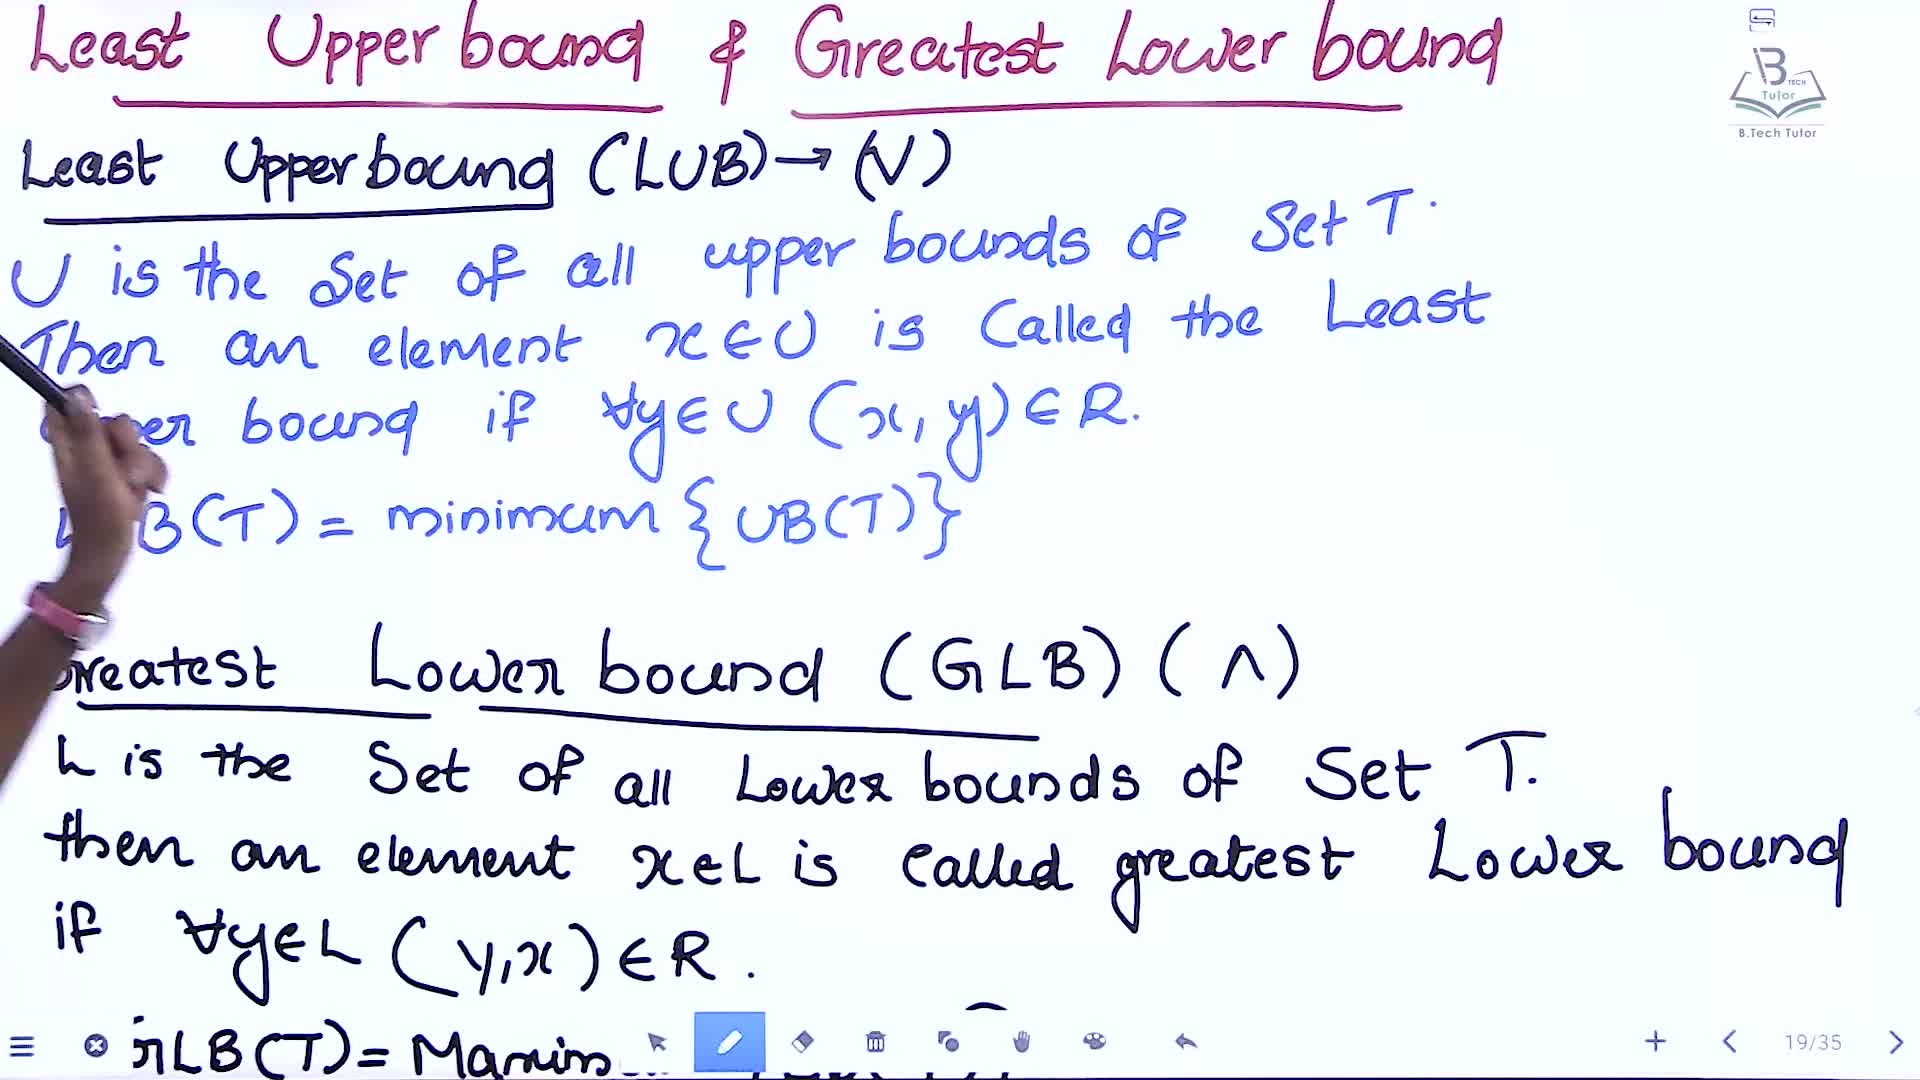 Least Upper bound & Greatest Lower bound
B TECH
Tutor
B.Tech Tutor
Least Upper bound (LUB) → (V)
U is the Set of all upper bounds of Set T.
Then an element x∈U is Called the Least
bound if ∀y∈U (x, y)∈R.
B(T) = minimum {UB(T)}
Greatest Lower bound (GLB) (∧)
L is the Set of all Lower bounds of Set T.
then an element x∈L is called greatest Lower bound
if ∀y∈L (y,x)∈R.
GLB(T)=
19/35